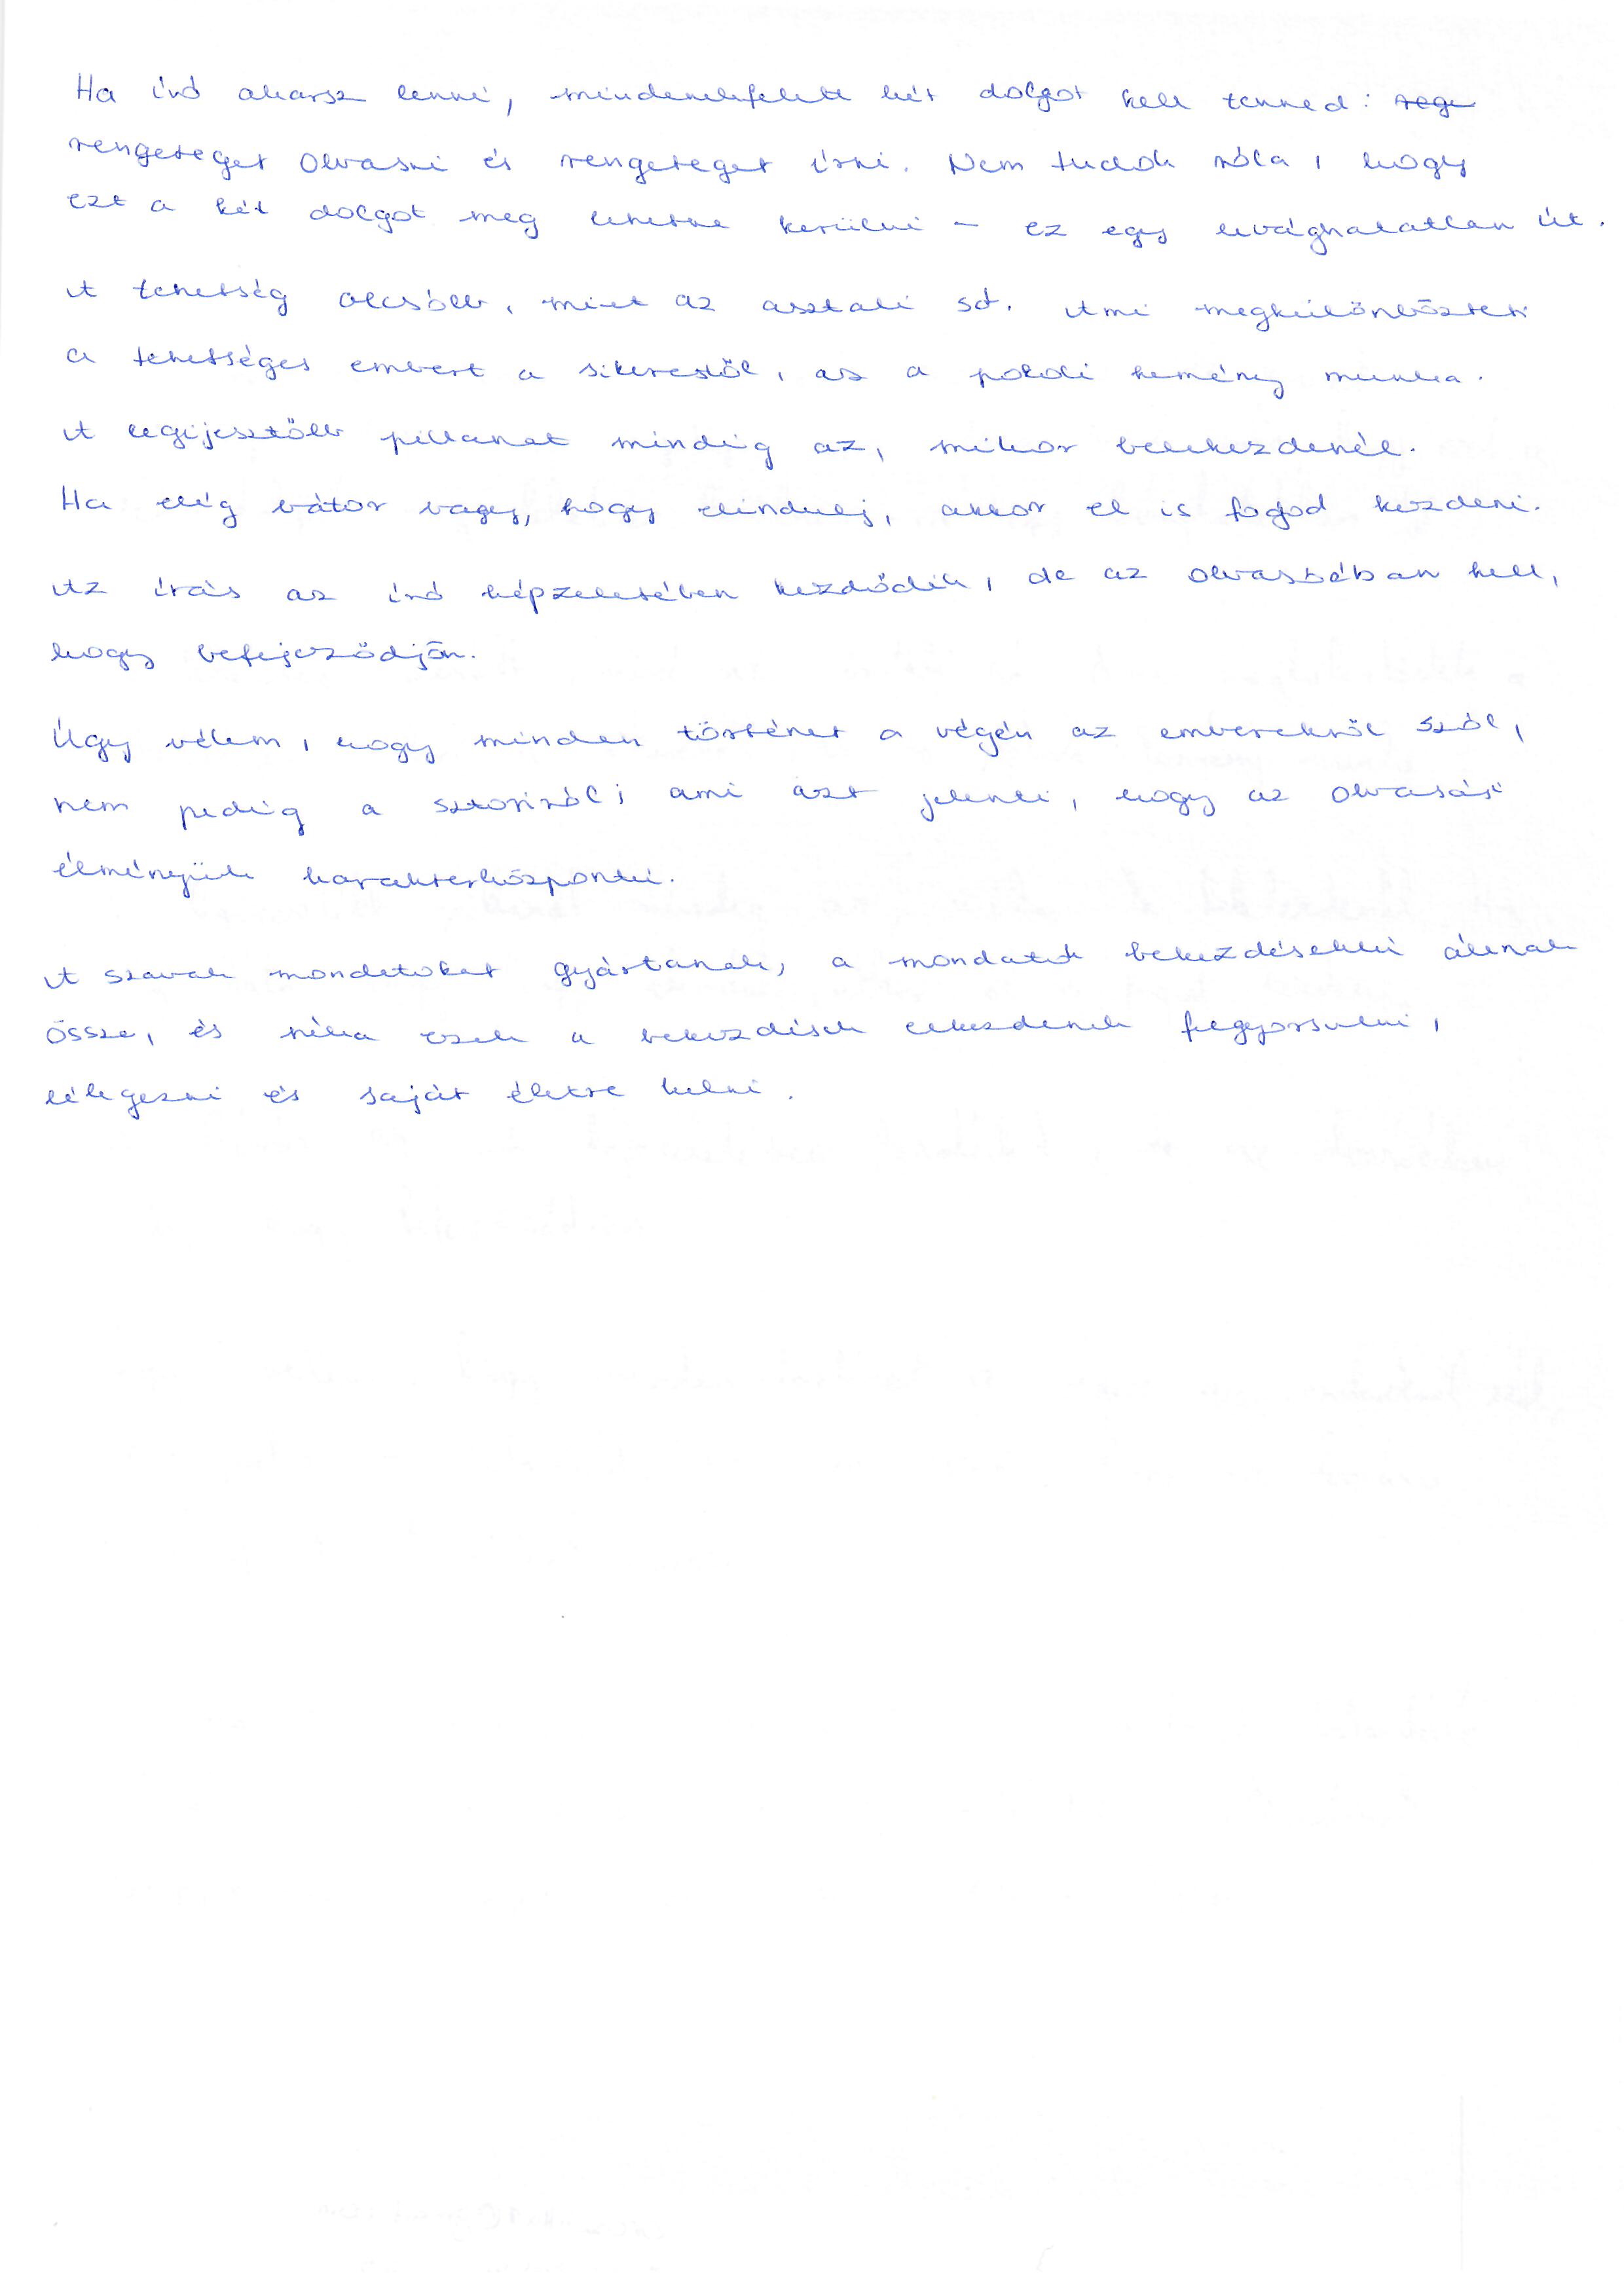 Ha író akarsz lenni, mindenekfelett két dolgot kell tenned: rege
rengeteget olvasni és rengeteget írni. Nem tudok róla, hogy
ezt a két dolgot meg lehetne kerülni – ez egy levághatatlan út.
A tehetség olcsóbb, mint az asztali só. Ami megkülönbözteti
a tehetséges embert a sikerestől, az a pokoli kemény munka.
A legijesztőbb pillanat mindig az, mikor belekezdenél.
Ha elég bátor vagy, hogy elindulj, akkor el is fogod kezdeni.
Az írás az író képzeletében kezdődik, de az olvasóban kell,
hogy befejeződjön.
Úgy vélem, hogy minden történet a végén az emberekről szól,
nem pedig a sztoriról; ami azt jelenti, hogy az olvasási
élményük karakterközpontú.
A szavak mondatokat gyártanak, a mondatok bekezdésekké állnak
össze, és néha ezek a bekezdések elkezdenek felgyorsulni,
lélegezni és saját életre kelni.